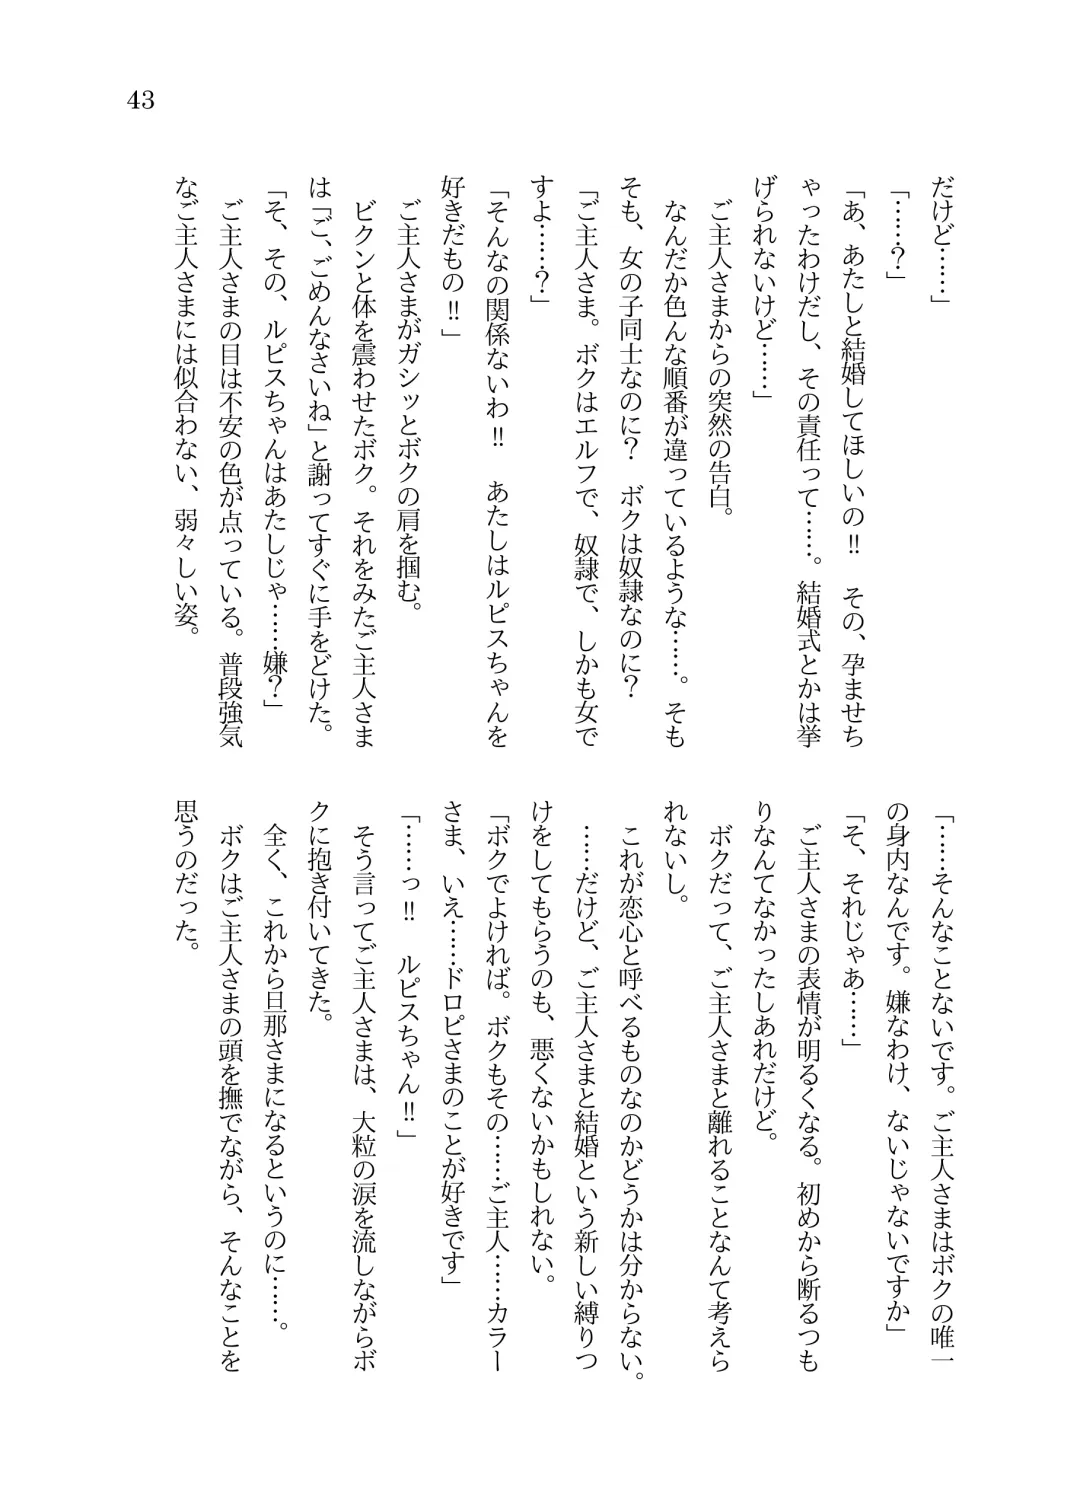 43
だけど……」
「……？」
「あ、あたしと結婚してほしいの‼　その、孕ませち
ゃったわけだし、その責任って……。結婚式とかは挙
げられないけど……」
　ご主人さまからの突然の告白。
　なんだか色んな順番が違っているような……。そも
そも、女の子同士なのに？　ボクは奴隷なのに？
「ご主人さま。ボクはエルフで、奴隷で、しかも女で
すよ……？」
「そんなの関係ないわ‼　あたしはルピスちゃんを
好きだもの‼」
　ご主人さまがガシッとボクの肩を掴む。
　ビクンと体を震わせたボク。それをみたご主人さま
は「ご、ごめんなさいね」と謝ってすぐに手をどけた。
「そ、その、ルピスちゃんはあたしじゃ……嫌？」
　ご主人さまの目は不安の色が点っている。普段強気
なご主人さまには似合わない、弱々しい姿。
「……そんなことないです。ご主人さまはボクの唯一
の身内なんです。嫌なわけ、ないじゃないですか」
「そ、それじゃあ……」
　ご主人さまの表情が明るくなる。初めから断るつも
りなんてなかったしあれだけど。
　ボクだって、ご主人さまと離れることなんて考えら
れないし。
　これが恋心と呼べるものなのかどうかは分からない。
　……だけど、ご主人さまと結婚という新しい縛りつ
けをしてもらうのも、悪くないかもしれない。
「ボクでよければ。ボクもその……ご主人……カラー
さま、いえ……ドロピさまのことが好きです」
「……っ‼　ルピスちゃん‼」
　そう言ってご主人さまは、大粒の涙を流しながらボ
クに抱き付いてきた。
　全く、これから旦那さまになるというのに……。
　ボクはご主人さまの頭を撫でながら、そんなことを
思うのだった。